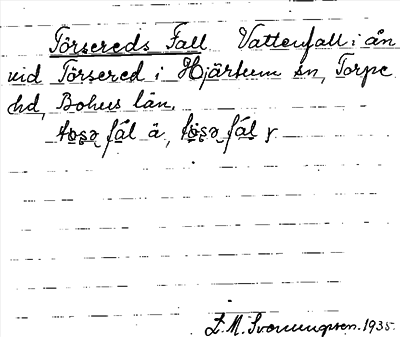 Törsereds Fall Vattenfall i ån
vid Törsered i Hjärtum sn, Torpe
hd, Bohus län.
fål ä, fål y
1935.